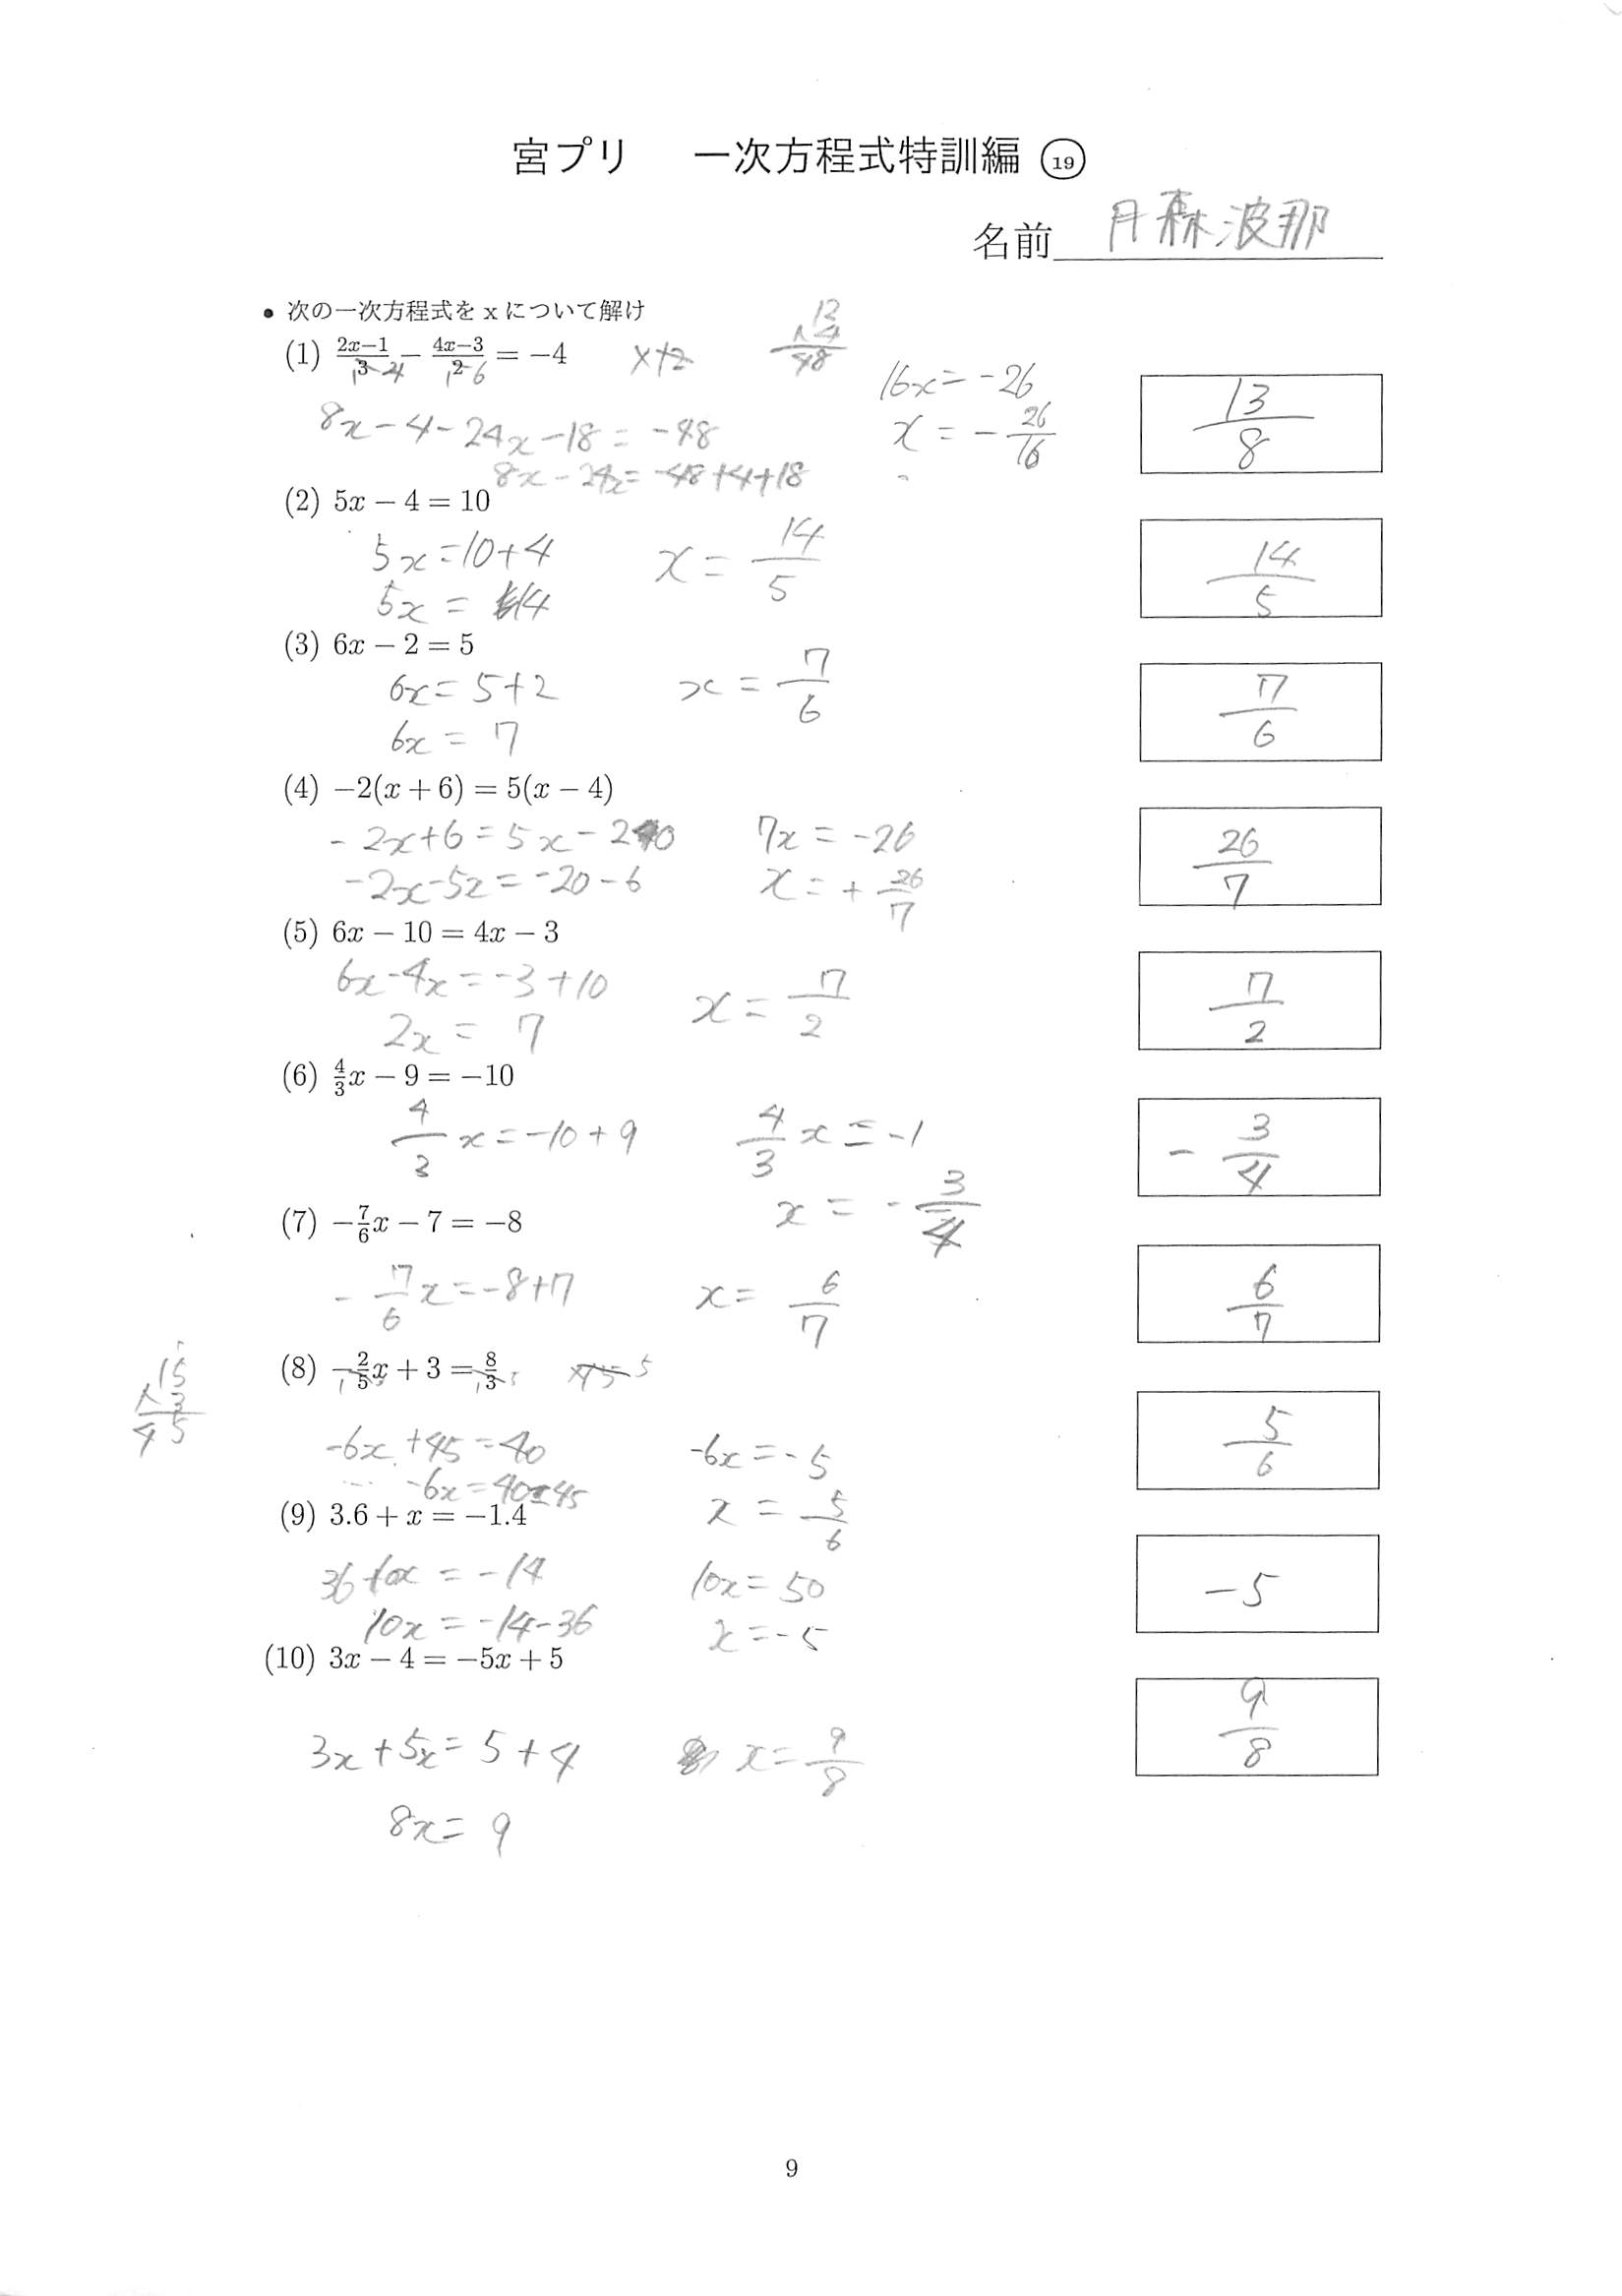 宮プリ 一次方程式特訓編 ⑲
名前 丹森波那
• 次の一次方程式を x について解け
(1) \frac{2x-1}{3} - \frac{4x-3}{2} = -4 ×12
12
×4
48
8x - 4 - 24x - 18 = -48
8x - 24x = -48 + 4 + 18
16x = -26
x = -\frac{26}{16}
\frac{13}{8}
(2) 5x - 4 = 10
5x = 10 + 4
5x = 14
x = \frac{14}{5}
\frac{14}{5}
(3) 6x - 2 = 5
6x = 5 + 2
6x = 7
x = \frac{7}{6}
\frac{7}{6}
(4) -2(x + 6) = 5(x - 4)
-2x + 6 = 5x - 20
-2x - 5x = -20 - 6
7x = -26
x = +\frac{26}{7}
\frac{26}{7}
(5) 6x - 10 = 4x - 3
6x - 4x = -3 + 10
2x = 7
x = \frac{7}{2}
\frac{7}{2}
(6) \frac{4}{3}x - 9 = -10
\frac{4}{3}x = -10 + 9
\frac{4}{3}x = -1
x = -\frac{3}{4}
-\frac{3}{4}
(7) -\frac{7}{6}x - 7 = -8
-\frac{7}{6}x = -8 + 7
x = \frac{6}{7}
\frac{6}{7}
(8) -\frac{2}{5}x + 3 = \frac{8}{3} ×15
15
×3
45
-6x + 45 = 40
-6x = 40 - 45
-6x = -5
x = \frac{5}{6}
\frac{5}{6}
(9) 3.6 + x = -1.4
36 + 10x = -14
10x = -14 - 36
10x = 50
x = -5
-5
(10) 3x - 4 = -5x + 5
3x + 5x = 5 + 4
8x = 9
x = \frac{9}{8}
\frac{9}{8}
9